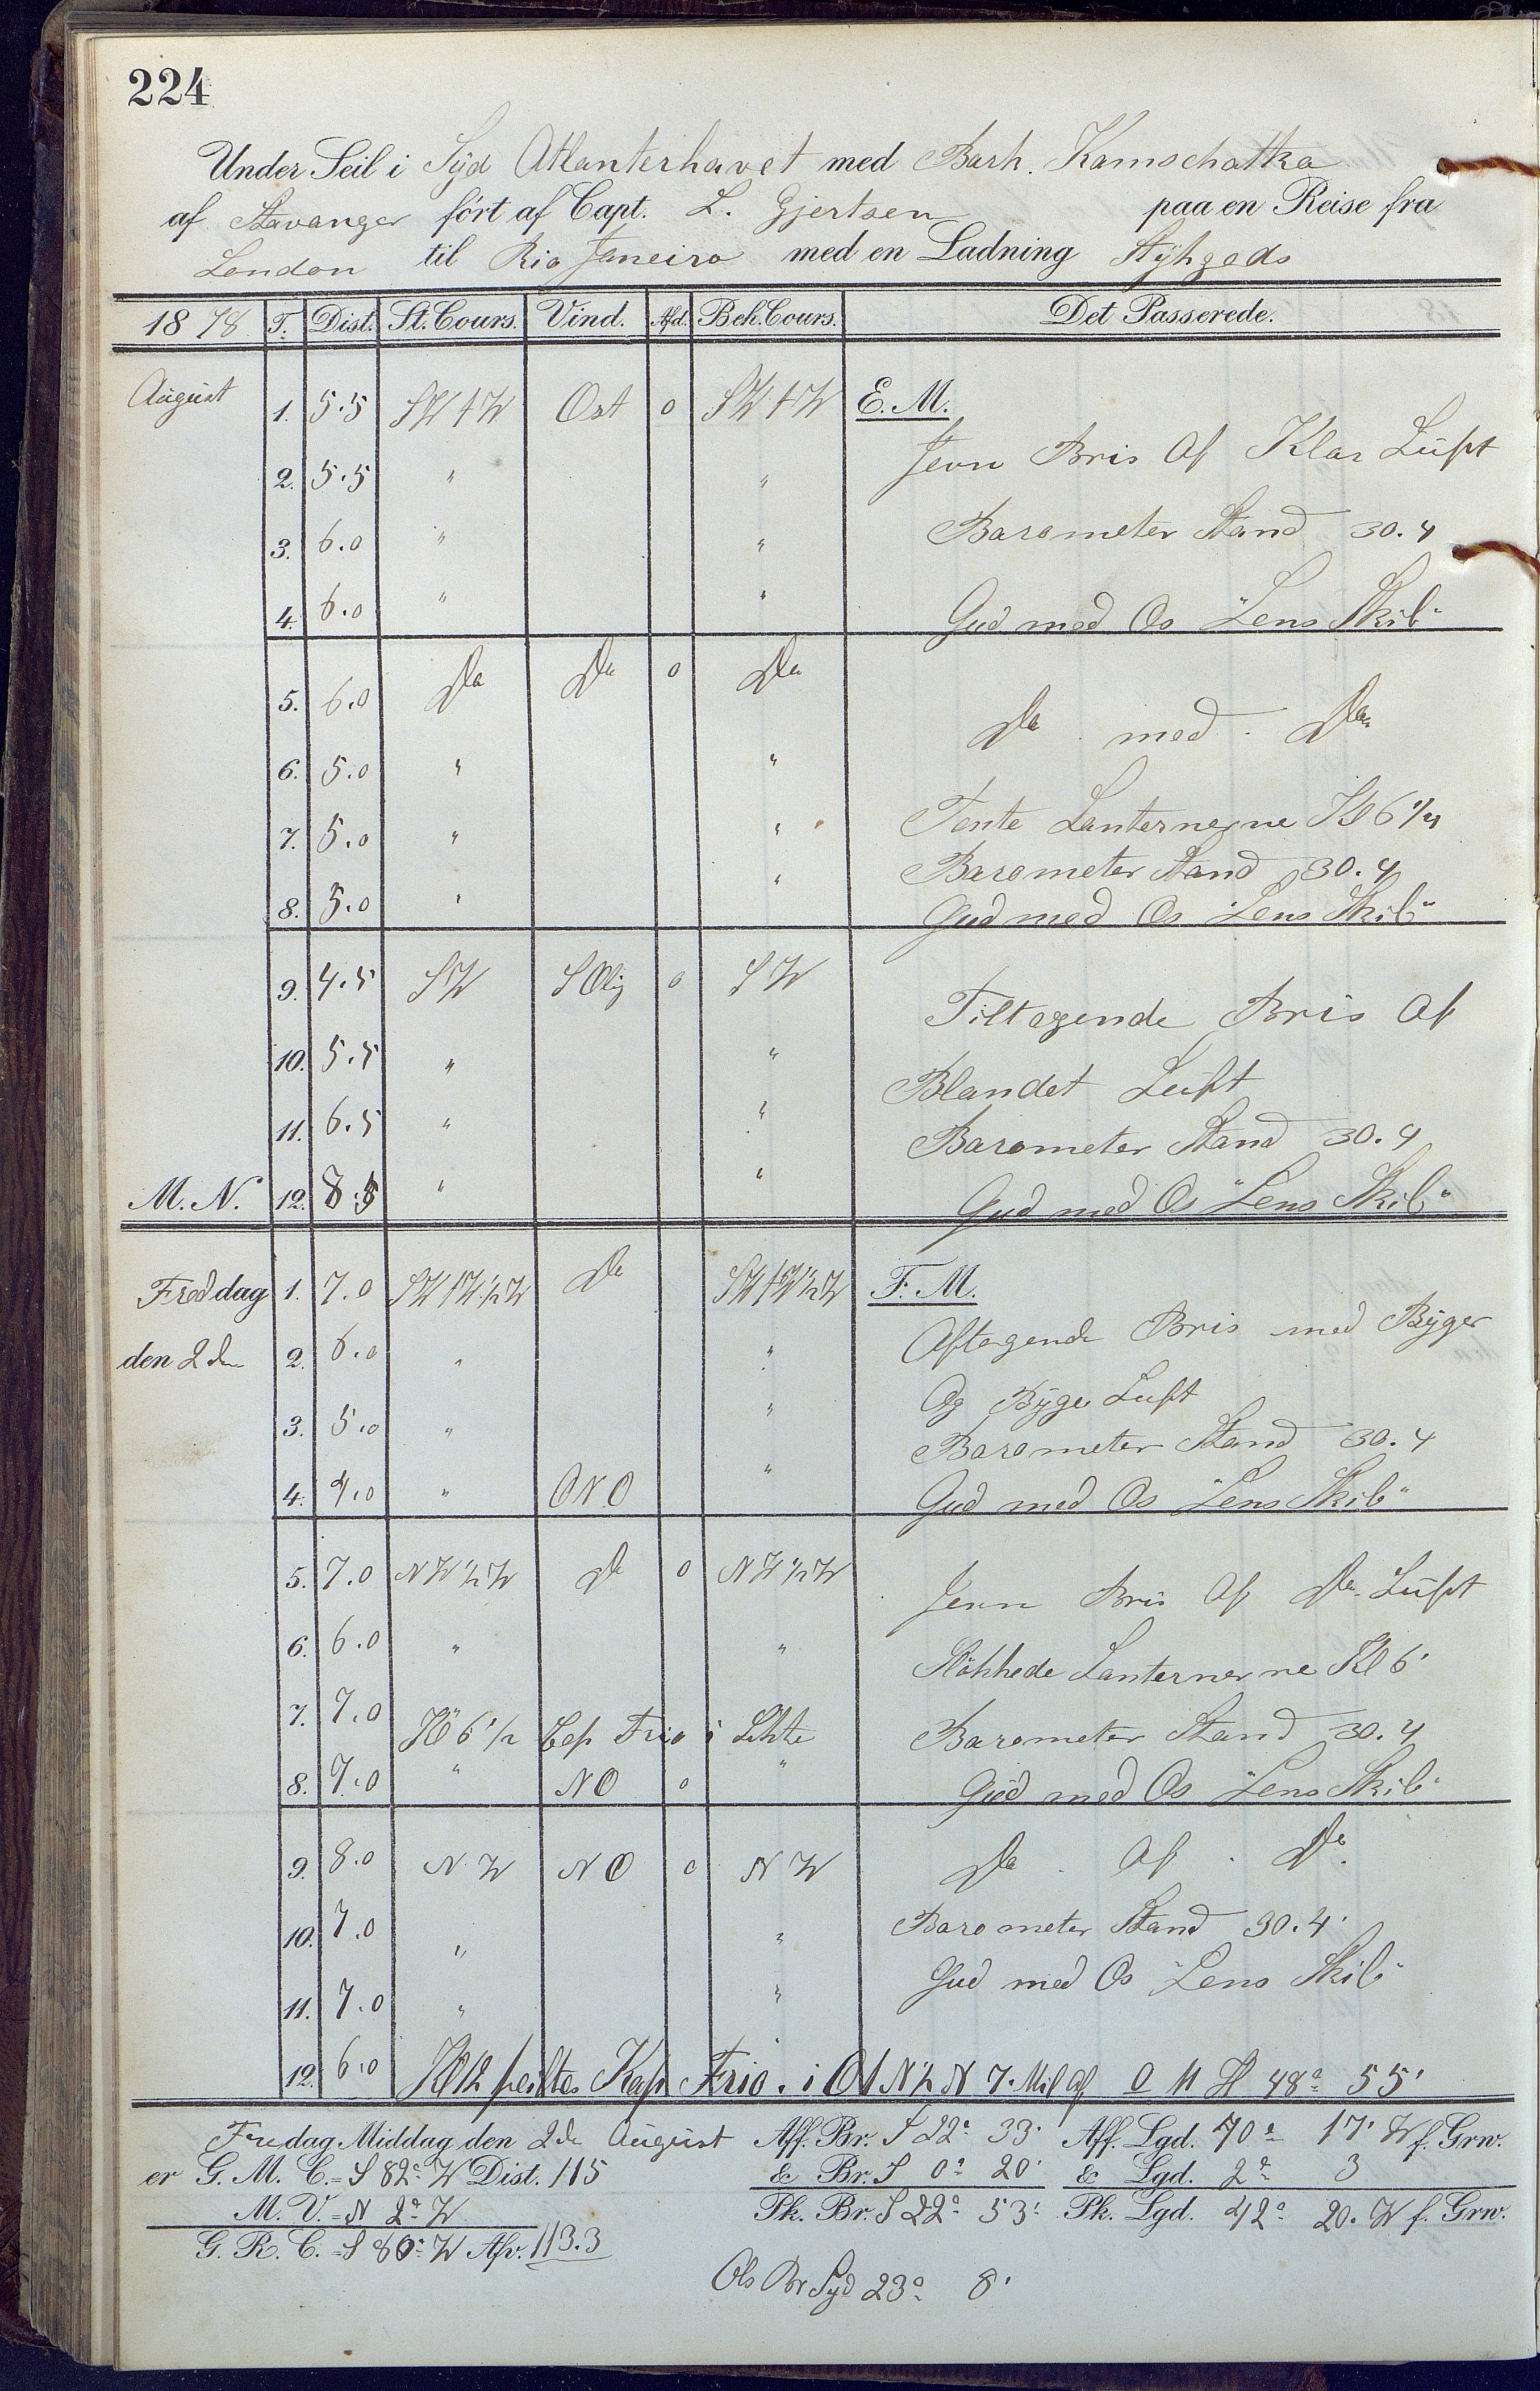 224
Under Seil i Syd Atlanterhavet med Bark. Kamschatka
af Stavanger fört af Capt. L. Gjertsen paa en Reise fra
London til Rio Janeiro med en Ladning Stykgods
1878 T. Dist. St. Cours. Vind. Afd. Beh. Cours. Det Passerede.
August 1. 5.5 SW t W Ost 0 SW t W E. M.
Jevn Bris Af Klar Luft
2. 5.5 " "
3. 6.0 " " Barometer Stand 30.4
4. 6.0 " " Gud med Os "Lens Skib"
5. 6.0 Do Do 0 Do
Do med Do
6. 5.0 " "
7. 5.0 " " Tente Lanternerne Kl 6 1/4
Barometer Stand 30.4
8. 5.0 " " Gud med Os "Lens Skib"
9. 4.5 SW SOlig 0 SW
Tiltagende Bris Af
10. 5.5 " "
Blandet Luft
11. 6.5 " " Barometer Stand 30.4
M. N. 12. 8.5 " " Gud med Os "Lens Skib"
Freddag 1. 7.0 SW t W 1/2 W Do SW t W 1/2 W F. M.
den 2den 2. 6.0 " " Aftagende Bris med Byger
Og Byge Luft
3. 5.0 " " Barometer Stand 30.4
4. 4.0 " ONO " Gud med Os "Lens Skib"
5. 7.0 NW 1/2 W Do 0 NW 1/2 W Jevn Bris Af Do Luft
6. 6.0 " " Slökkede Lanternerne Kl 6
7. 7.0 Kl 6 1/2 Cap Frio i Sikte Barometer Stand 30.4
8. 7.0 " NO 0 " Gud med Os "Lens Skib"
9. 8.0 NW NO 0 NW Do Af Do
10. 7.0 " " Barometer Stand 30.4
Gud med Os "Lens Skib"
11. 7.0 " "
12. 6.0 Kl 12 peiltes Kap Frio. i O t N 1/2 N 7. Mil af 48° 55'
Fredag Middag den 2de August Aff. Br. S 22° 33' Aff. Lgd. 70° 17' W f. Grw.
er G. M. C. = S 82° W Dist. 115 & Br. S 0° 20' & Lgd. 2° 3
M. V. = N 2° W Pk. Br. S 22° 53' Pk. Lgd. 42° 20. W f. Grw.
G. R. C. = S 80° W Afv. 113.3
Obs Br Syd 23° 8'